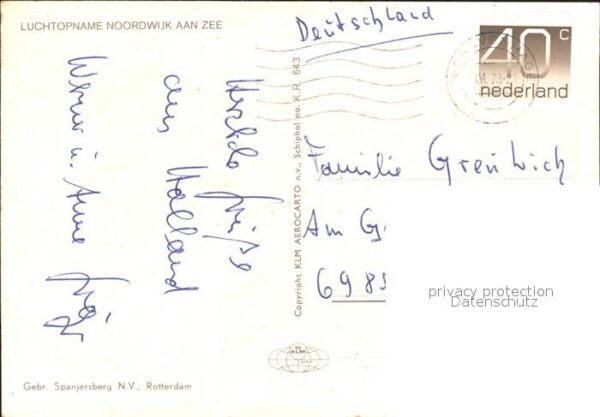 LUCHTOPNAME NOORDWIJK AAN ZEE
Herzliche Grüße
aus Holland
Werner u. Anne
Copyright KLM AEROCARTO n.v., Schiphol no. K.R. 643
KLM
Gebr. Spanjersberg N.V., Rotterdam
Deutschland
40 c
nederland
Familie
Am G
6983
privacy protection
Datenschutz